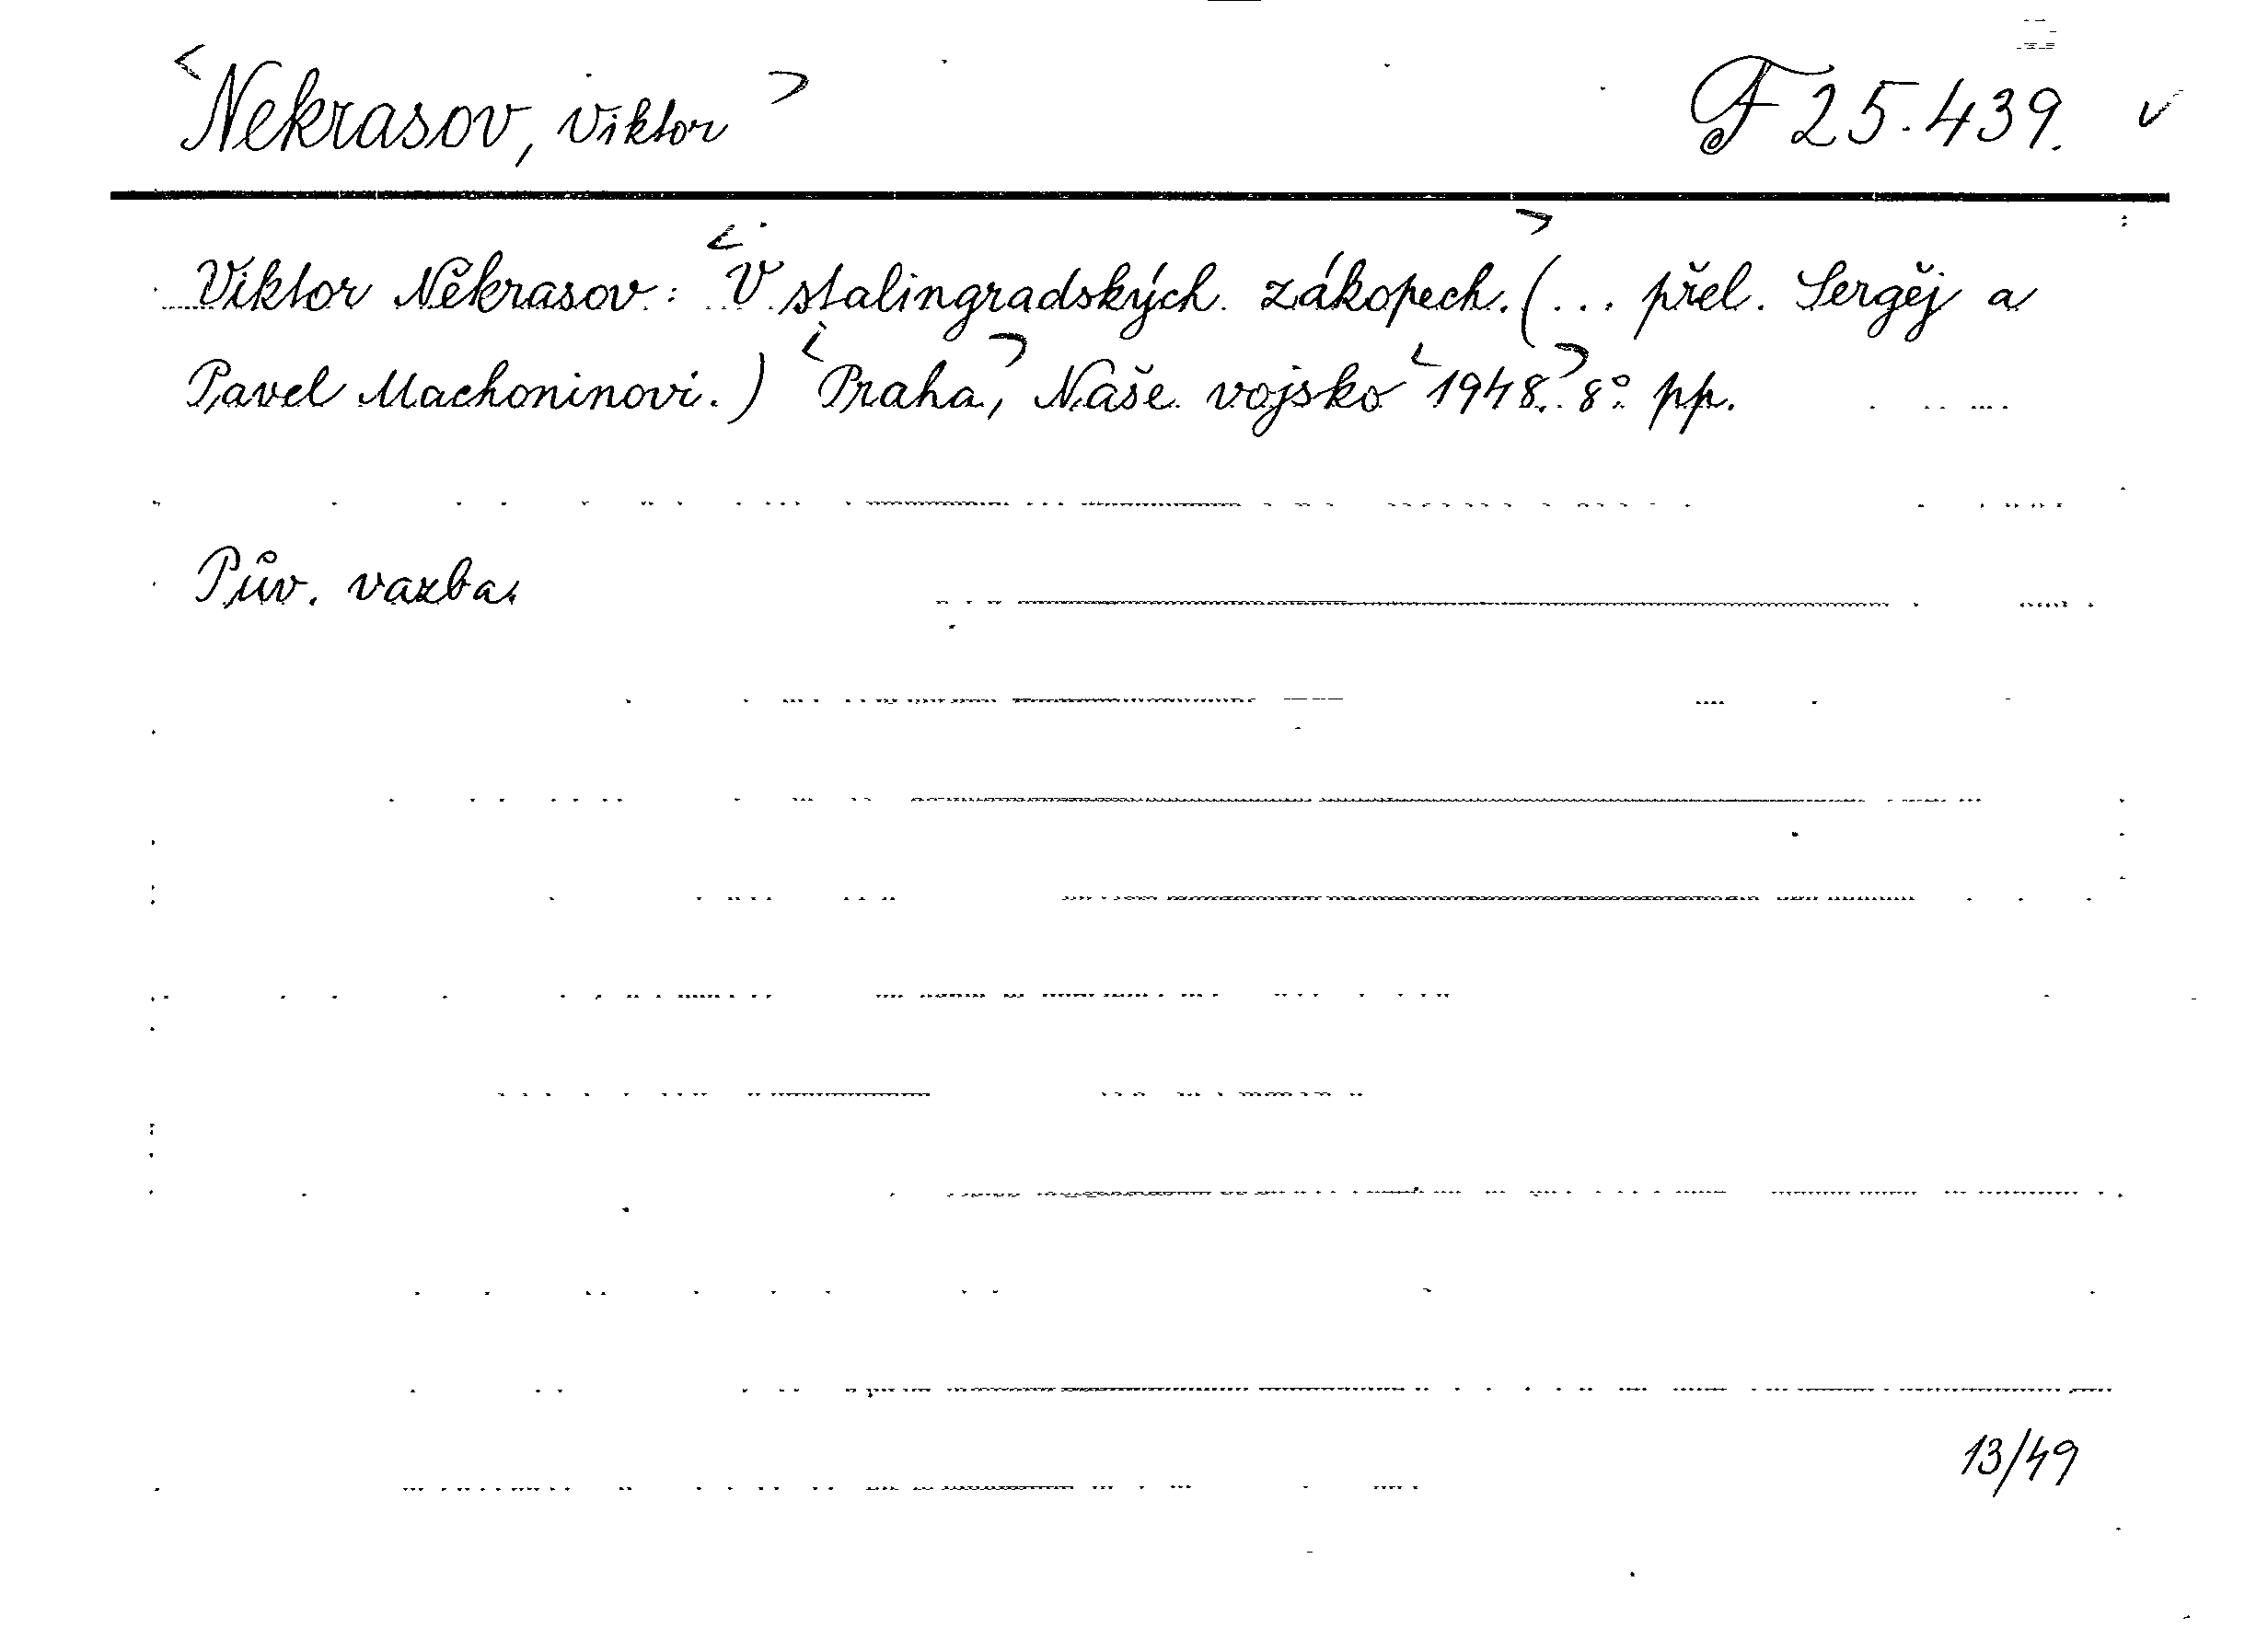 <Nekrasov, Viktor> F 25.439. v
Viktor Nekrasov: <V stalingradských zákopech.> (... přel. Sergěj a
Pavel Machoninovi.) <Praha,> Naše vojsko <1948.> 8° pp.
Pův. vazba.
13/49